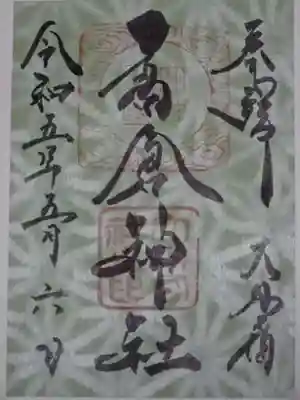 奉拝 大内宿
高倉神社
令和五年五月六日